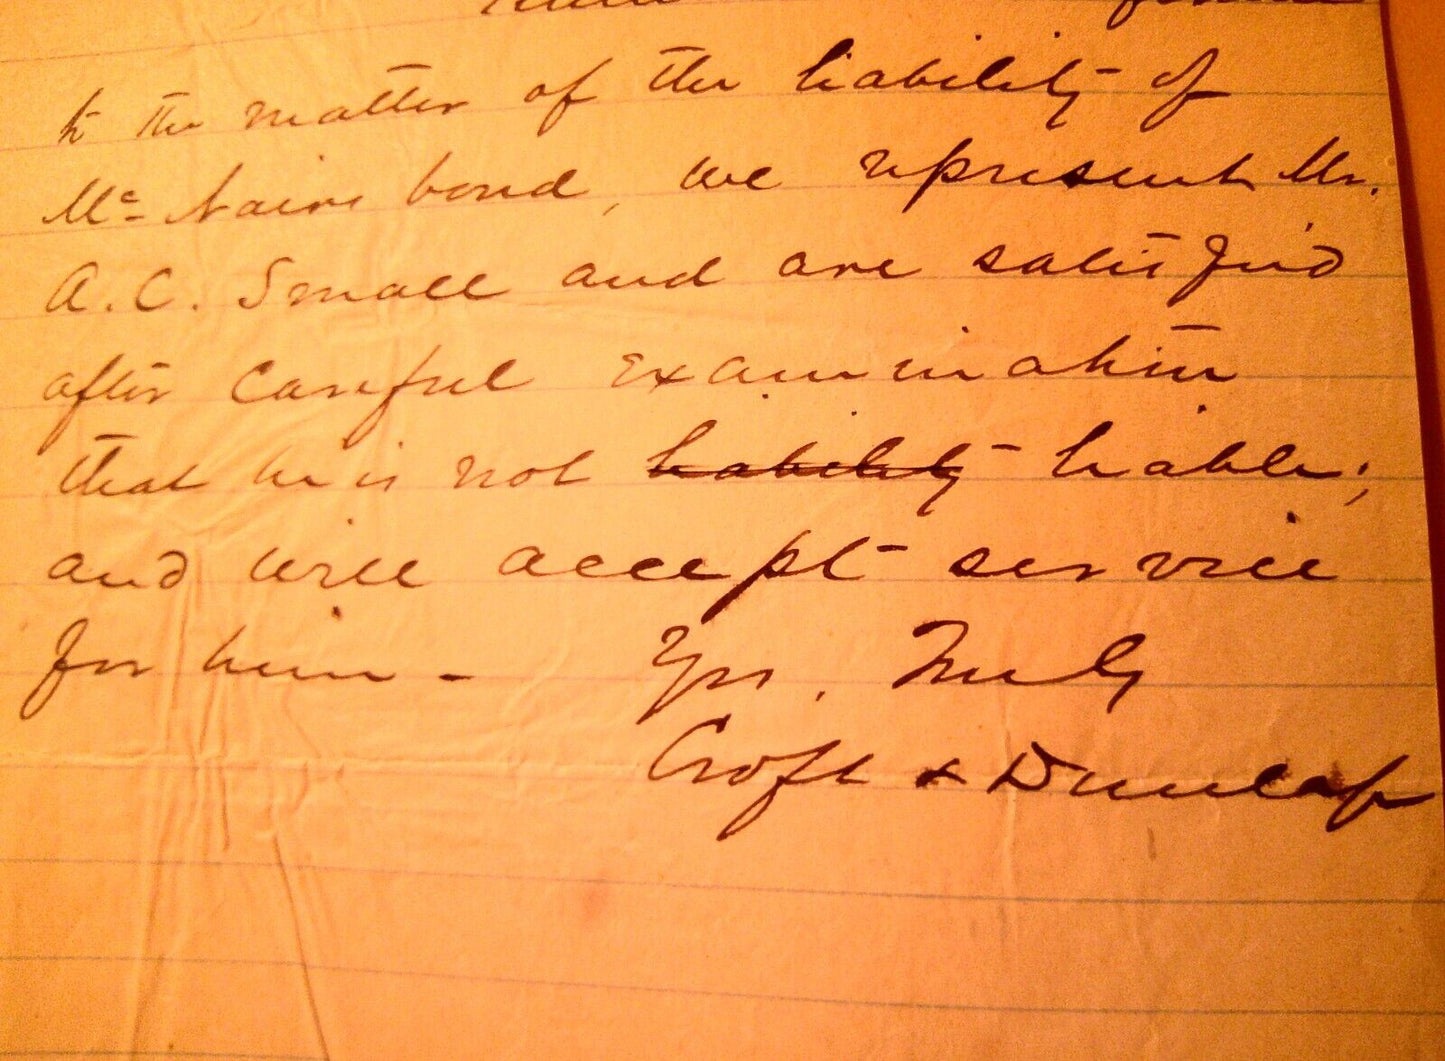 to the matter of the liability of
Mc Nairs bond, we represent Mr.
A. C. Small and are satisfied
after careful examination
that he is not liability liable;
and will accept service
for him -
Yrs. Truly
Croft & Dunlap